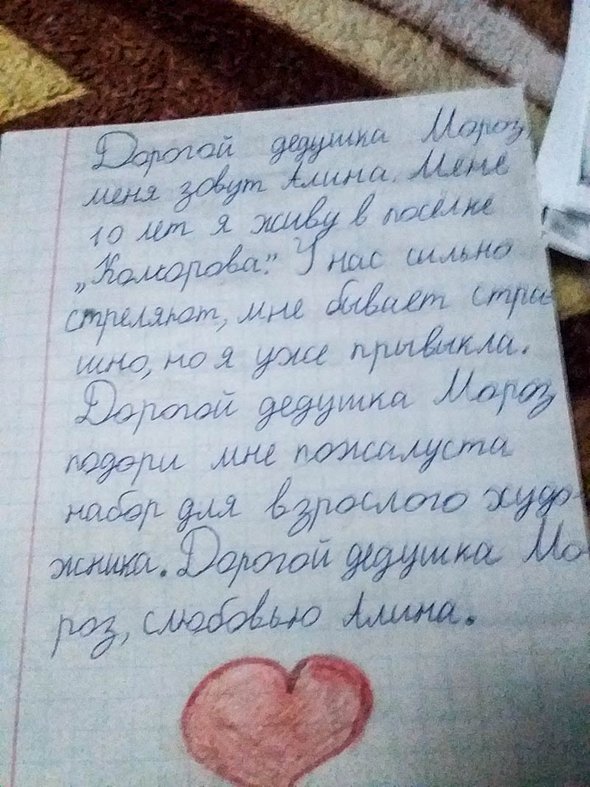 Дорогой дедушка Мороз
меня зовут Алина. Мене
10 лет я живу в посёлке
„Комсорова". У нас сильно
стреляют, мне бывает стра-
шно, но я уже прывыкла.
Дорогой дедушка Мороз
подори мне пожалуста
набор для взрослого худо-
жника. Дорогой дедушка Мо-
роз, слюбовью Алина.